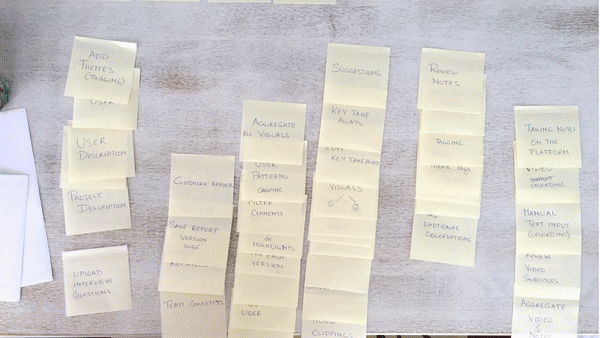 ADD
THEMES
(TAGGING)
USER
USER
DESCRIPTION
PROJECT
DESCRIPTION
UPLOAD
INTERVIEW
QUESTIONS
CUSTOMIZE REPORTS
SAVE REPORT
VERSION
WISE
TEAM COMMENTS
AGGREGATE
ALL VISUALS
USER
PATTERNS
FILTER
COMMENTS
OF HIGHLIGHTS
FOR EACH
VERSION
BY
USER
SUGGESTIONS
KEY TAKE
AWAYS
KEY TAKEAWAYS
VISUALS
① ②
CLIPPINGS
REVIEW
NOTES
TAGGING
EMOTIONAL
OBSERVATIONS
TAKING NOTES
ON THE
PLATFORM
VIDEO
MANUAL
TEXT INPUT
(UPLOADING)
REVIEW
VIDEO
SUBTITLES
AGGREGATE
VIDEO
&
NOTES